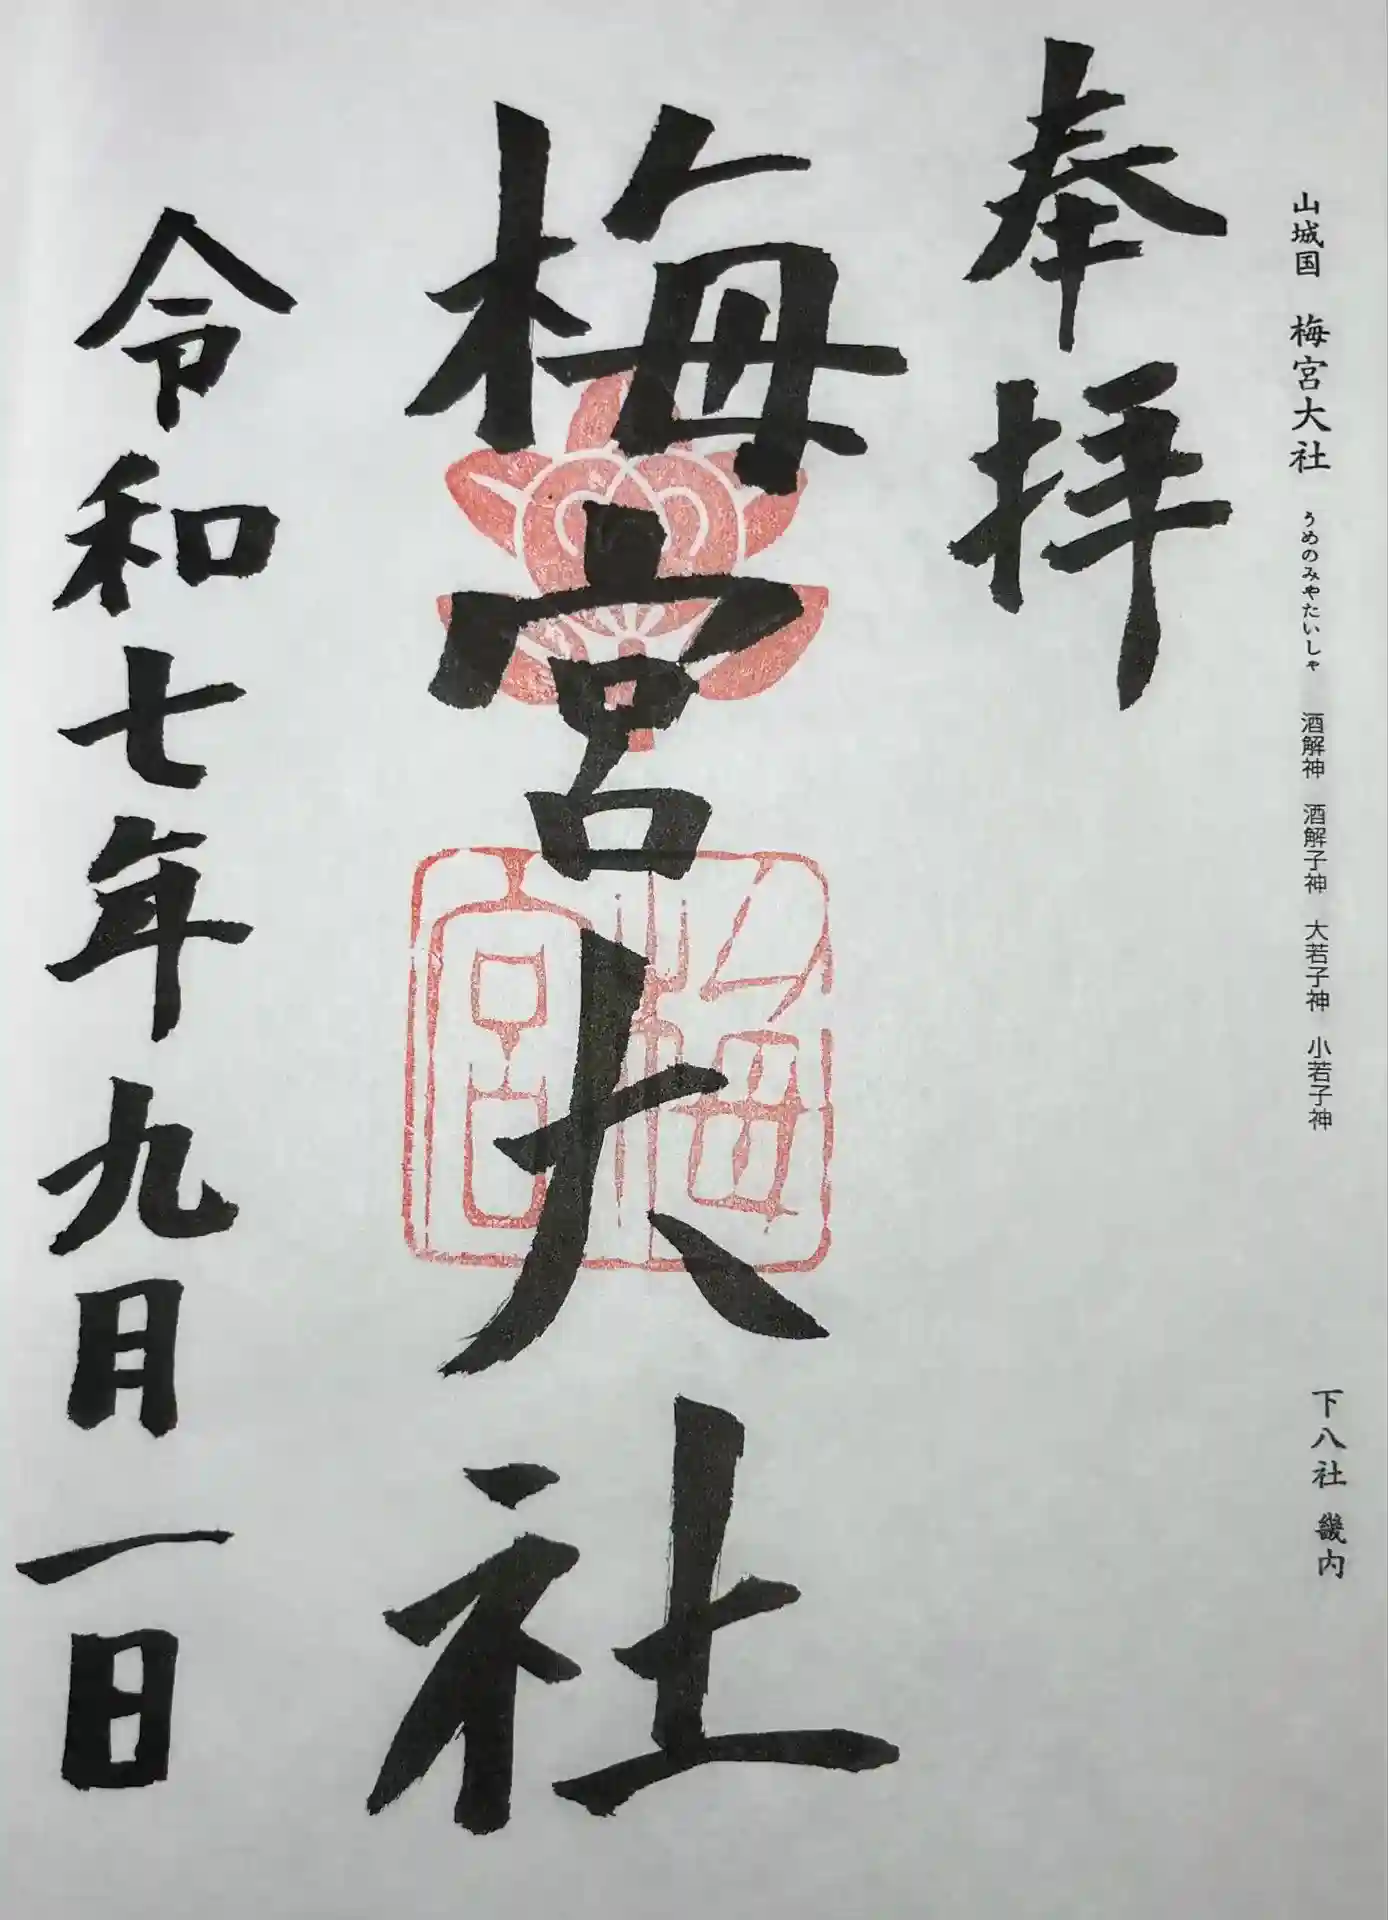 山城国 梅宮大社 うめのみやたいしゃ 酒解神 酒解子神 大若子神 小若子神 下八社 畿内
奉拝
梅宮大社
梅宮
令和七年九月一日